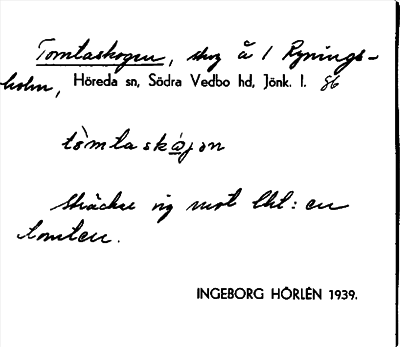 Tomtaskogen, skog å 1 Rynings-
holm, Höreda sn, Södra Vedbo hd, Jönk. l. 86
tòmtaskájən
sträcker sig mot lht: en
tomten.
INGEBORG HÖRLÉN 1939.